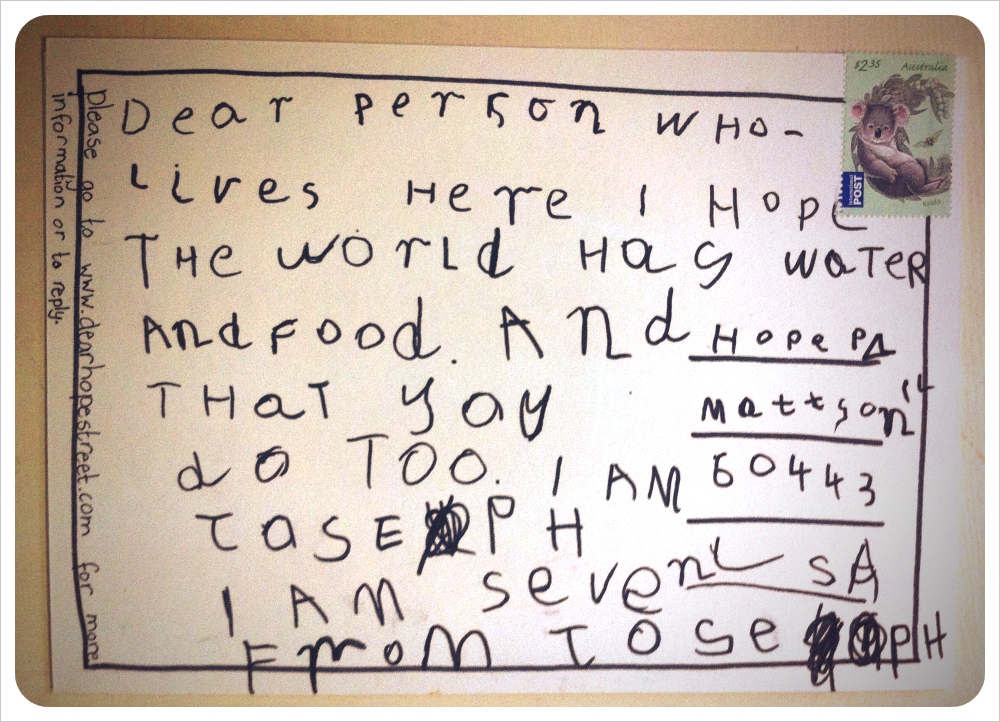 Dear person WHO-
Lives Here I Hope
THe WOrLd Has WaTeR
And Food. And
THaT you
do TOO. I AM
JOSEPH
I AM seven
From JOsePH
Hope PA
Mattson IL
60443
USA
please go to www.dearhopestreet.com for more
information or to reply.
$2.35 Australia
International
POST
Koala